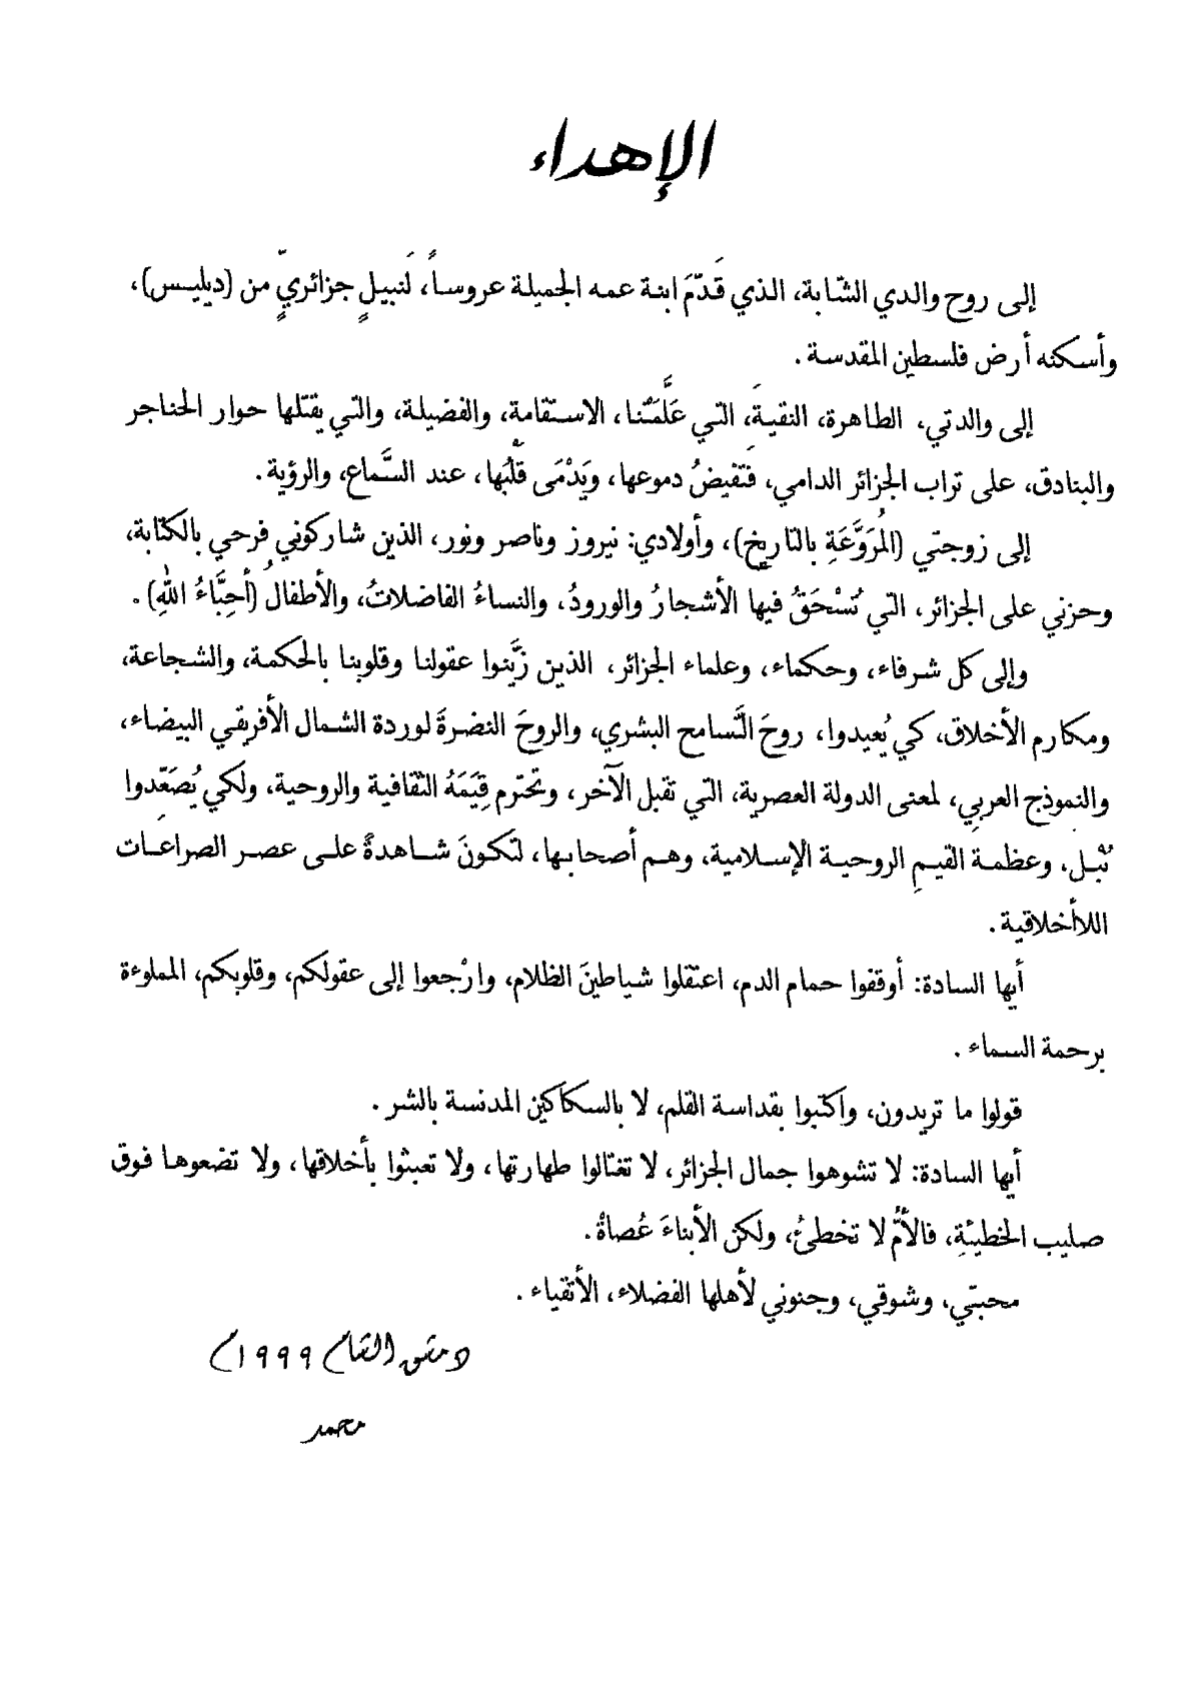 الإهداء
إلى روح والدي الشّابة، الذي قَدّمَ ابنة عمه الجميلة عروساً، لَنبيلٍ جزائريّ من (ديليس)،
وأسكنه أرض فلسطين المقدسة.
إلى والدتي، الطاهرة، النقية، التي عَلَّمَتْنا، الاستقامة، والفضيلة، والتي يقتلها حوار الخناجر
والبنادق، على تراب الجزائر الدامي، فَتفيضُ دموعها، ويَدْمَى قَلْبُها، عند السَّماع، والرؤية.
إلى زوجتي (المُرَوَّعَةِ بالتاريخ)، وأولادي: نيروز وناصر ونور، الذين شاركوني فرحي بالكتابة،
وحزني على الجزائر، التي تُسْحَقُ فيها الأشجارُ والورودُ، والنساءُ الفاضلاتُ، والأطفالُ (أحِبَّاءُ اللهِ).
وإلى كل شرفاء، وحكماء، وعلماء الجزائر، الذين زَيَّنوا عقولنا وقلوبنا بالحكمة، والشجاعة،
ومكارم الأخلاق، كي يُعيدوا، روحَ التَّسامح البشري، والروحَ النضرةَ لوردة الشمال الأفريقي البيضاء،
والنموذج العربي، لمعنى الدولة العصرية، التي تقبل الآخر، وتحترم قِيَمَهُ الثقافية والروحية، ولكي يُصَعِّدوا
نُبْل، وعظمة القيمِ الروحية الإسلامية، وهم أصحابها، لتكونَ شاهدةً على عصر الصراعات
اللاأخلاقية.
أيها السادة: أوقفوا حمام الدم، اعتقلوا شياطينَ الظلام، وارْجعوا إلى عقولكم، وقلوبكم، المملوءة
برحمة السماء.
قولوا ما تريدون، واكتبوا بقداسة القلم، لا بالسكاكين المدنسة بالشر.
أيها السادة: لا تشوهوا جمال الجزائر، لا تغتالوا طهارتها، ولا تعبثوا بأخلاقها، ولا تضعوها فوق
صليب الخطيئةِ، فالأمُّ لا تخطئُ، ولكن الأبناءَ عُصاةٌ.
محبتي، وشوقي، وجنوني لأهلها الفضلاء، الأتقياء.
دمشق الشام ١٩٩٩م
محمد